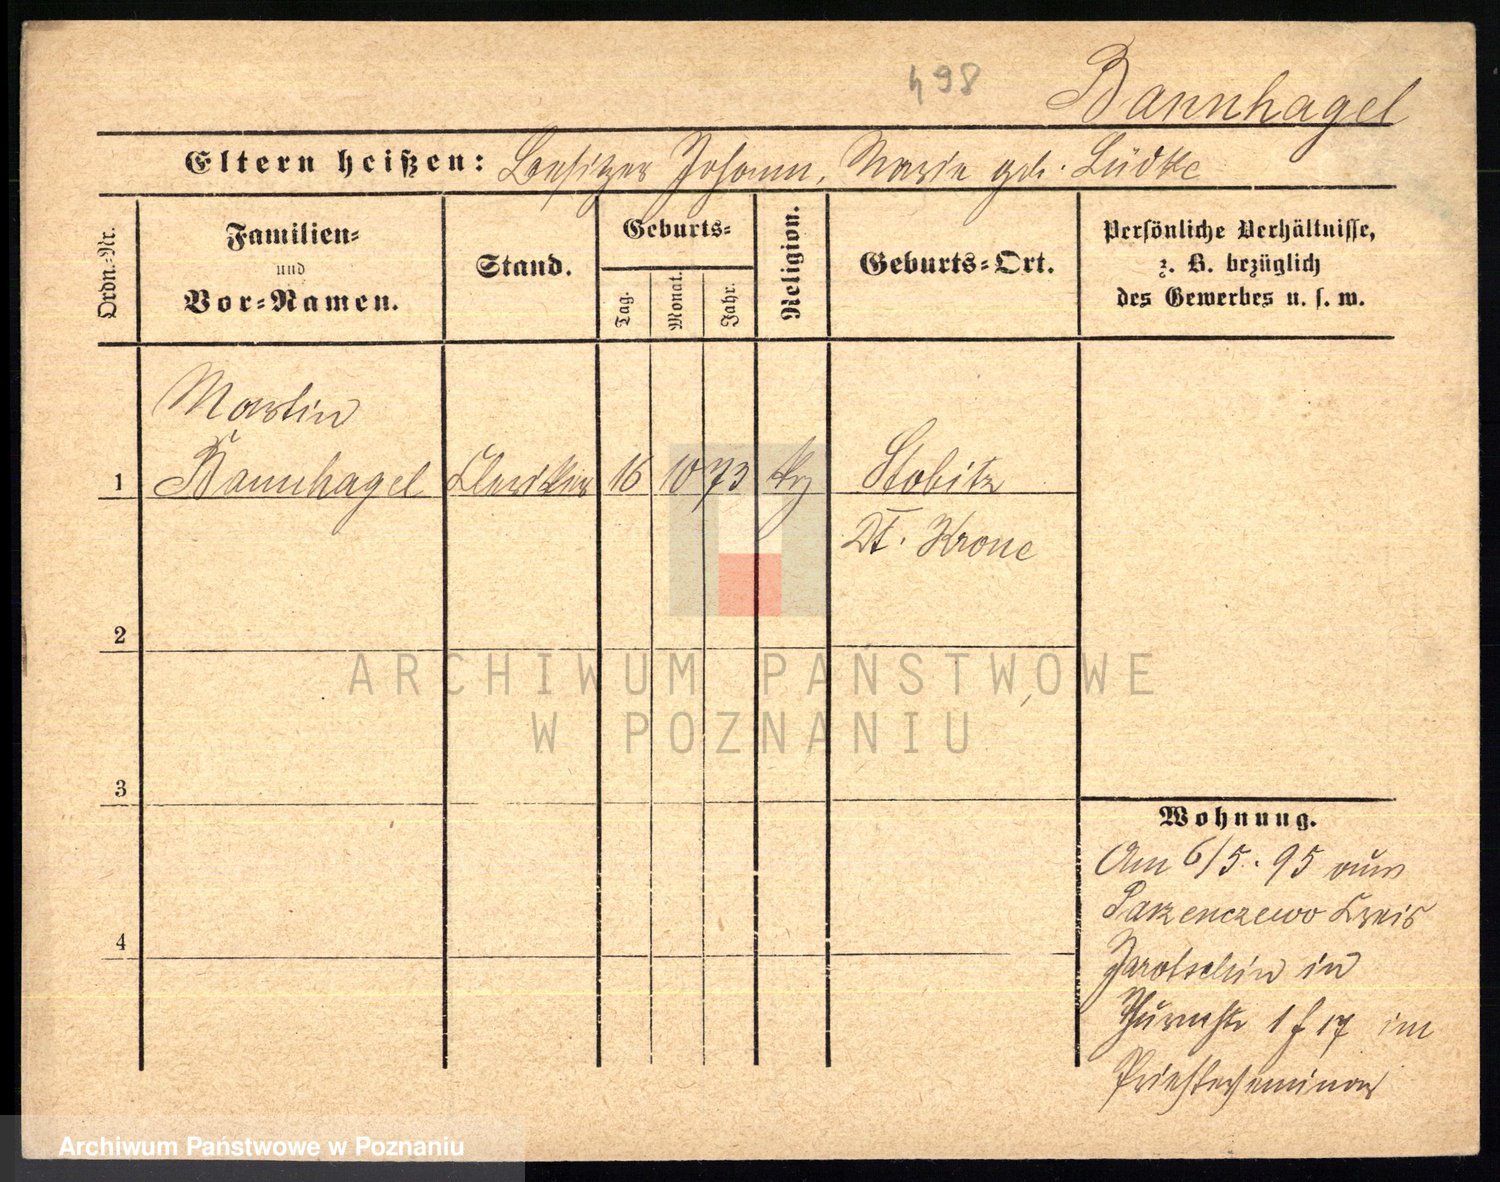 498
Bannhagel
Eltern heißen: Besitzer Johann, Marie geb. Lüdtke
Ordn.-Nr.
Familien-
und
Vor-Namen.
Stand.
Geburts-
Tag.
Monat.
Jahr.
Religion.
Geburts-Ort.
Persönliche Verhältnisse,
z. B. bezüglich
des Gewerbes u. s. w.
Martin
1 Bannhagel Kleriker 16 10 73 Stobitz
Dt. Krone
2
ARCHIWUM PAŃSTWOWE
W POZNANIU
3
Wohnung.
Am 6/5. 95 aus
Parzenczewo Kreis
4
Jarotschin in
Thurmstr 1 f 17 im
Priesterseminar
Archiwum Państwowe w Poznaniu